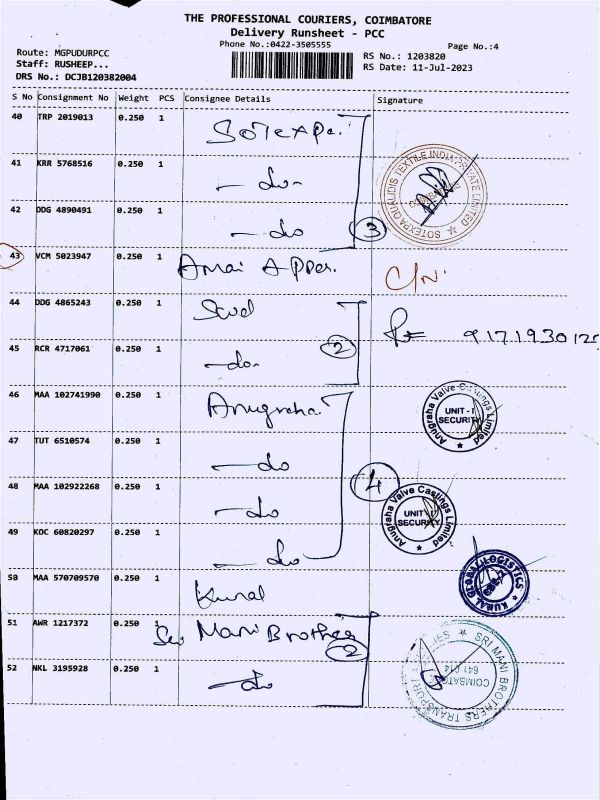 THE PROFESSIONAL COURIERS, COIMBATORE
Delivery Runsheet - PCC
Phone No.:0422-3505555
Page No.:4
Route: MGPUDURPCC
Staff: RUSHEEP...
DRS No.: DCJB120382004
RS No.: 1203820
RS Date: 11-Jul-2023
S No Consignment No Weight PCS Consignee Details Signature
40 TRP 2019013 0.250 1 SOTEXPa.
41 KRR 5768516 0.250 1 - do-
42 DDG 4890491 0.250 1 - do 3
SOTEXPAQUALIDIS TEXTILE INDIA PRIVATE LIMITED
43 VCM 5023947 0.250 1 C/N.
44 DDG 4865243 0.250 1
45 RCR 4717061 0.250 1 -do- 2
46 MAA 102741990 0.250 1 Anugraha
Anugraha Valve Castings Limited
UNIT - I
SECURITY
47 TUT 6510574 0.250 1 -do
48 MAA 102922268 0.250 1 -do 4
Anugraha Valve Castings Limited
UNIT
SECURITY
49 KOC 60820297 0.250 1 -do
50 MAA 570709570 0.250 1 Kunal
KUNAL GLOBAL LOGISTICS
51 AWR 1217372 0.250 1 Mani Brothers 2
52 NKL 3195928 0.250 1 -do
SRI MANI BROTHERS TRANSPORT
COIMBATORE
641 014